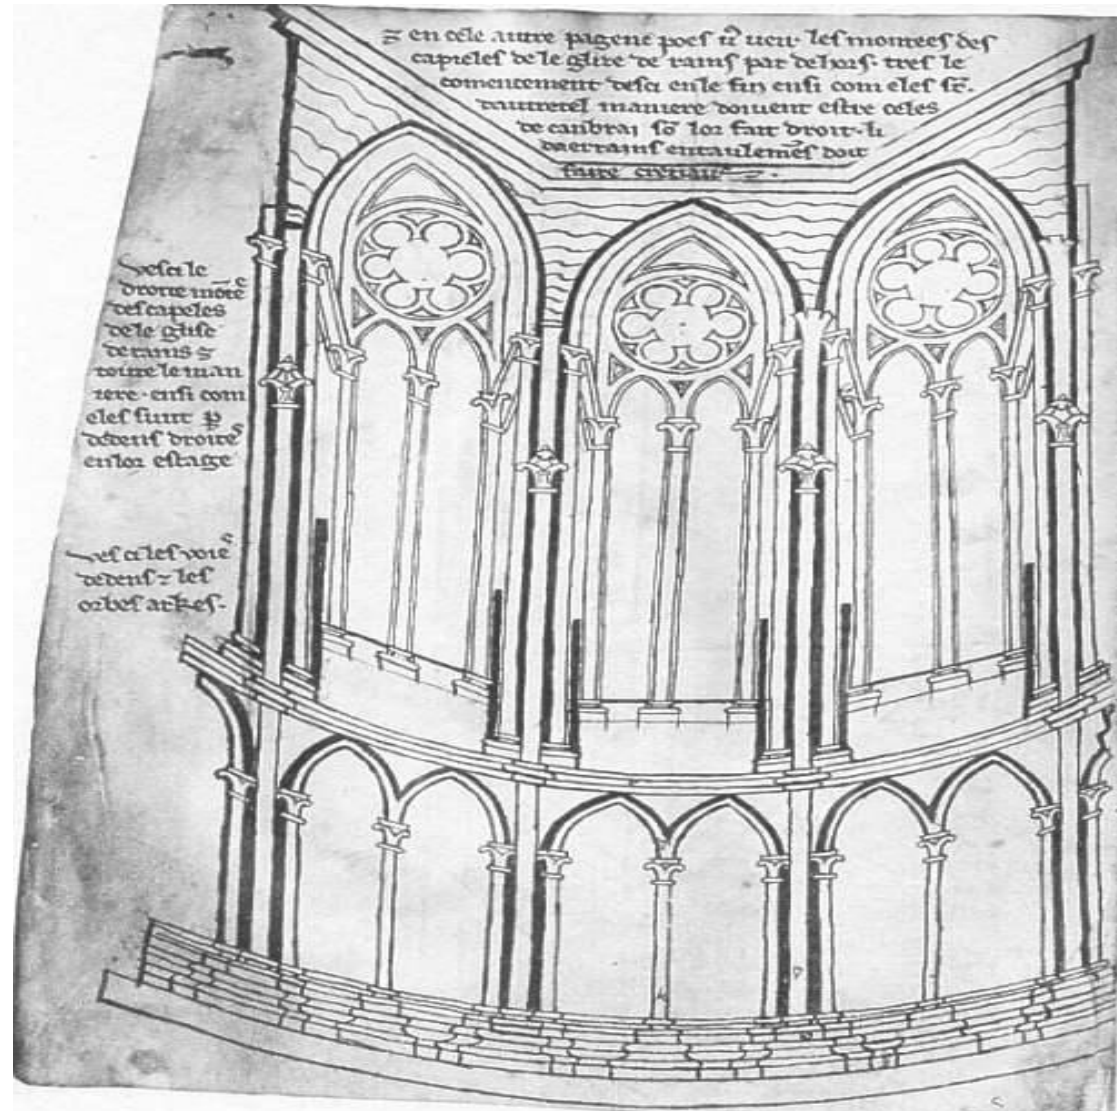 ⁊ en cele autre pagene poeſ uͦ ueir leſ monteeſ deſ
capieleſ de le glize de rainſ par dehorſ· treſ le
comencement deſci en le fin enſi com eleſ ſt̄.
dautretel maniere doiuent eſtre celeſ
de canbrai ſō lor fait droit· li
daerrainſ entaulemēſ doit
faire cretiauſ·
Veſci le
droite mōte͛
deſ capeleſ
de le gliſe
de rainſ ⁊
toute le man
iere· enſi com
eleſ ſunt ꝑ
dedenſ droiteſ
en lor eſtage
Veſ ci leſ voieſ
dedenſ ⁊ leſ
orbeſ arkeſ·